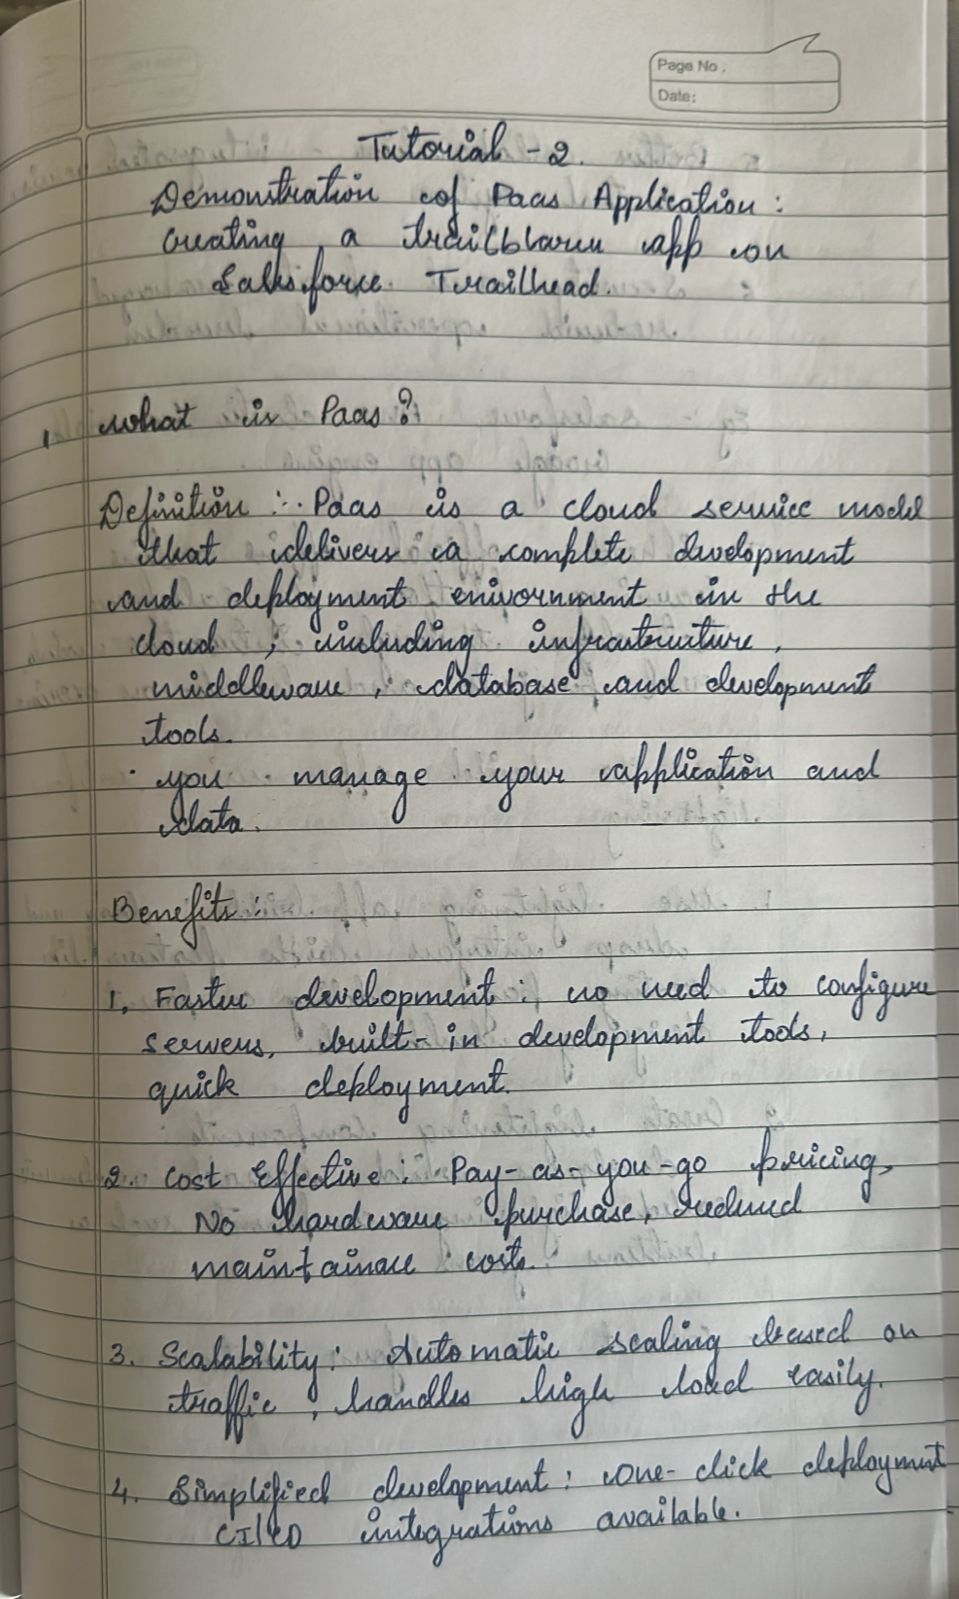 Page No.
Date:
Tutorial - 2.
Demonstration of Paas Application:
Creating a trailblazer app on
Salesforce Trailhead.
1. What is Paas?
Definition :- Paas is a cloud service model
that delivers a complete development
and deployment enivornment in the
cloud, including infrastructure,
middleware, database and development
tools.
· you manage your application and
data.
Benefits:
1. Faster development: no need to configure
servers, built-in development tools,
quick deployment.
2. Cost Effective: Pay-as-you-go pricing,
No hardware purchase, reduced
maintainace costs.
3. Scalability: Automatic scaling based on
traffic, handles high load easily.
4. Simplified development: one-click deployment
CI/CD integrations available.